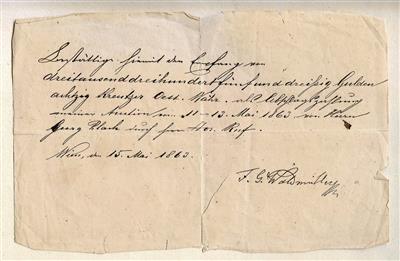 Bestättige hiemit den Empfang von
dreitausenddreihundertfünfunddreißig Gulden
achtzig Kreutzer Oest. Währ. als Abschlagszahlung
meiner Auction vom 11–13. Mai 1863 von Herrn
Georg Plach durch Herrn Jos. Kuf.
Wien, den 15. Mai 1863.
F. G. Waldmüller